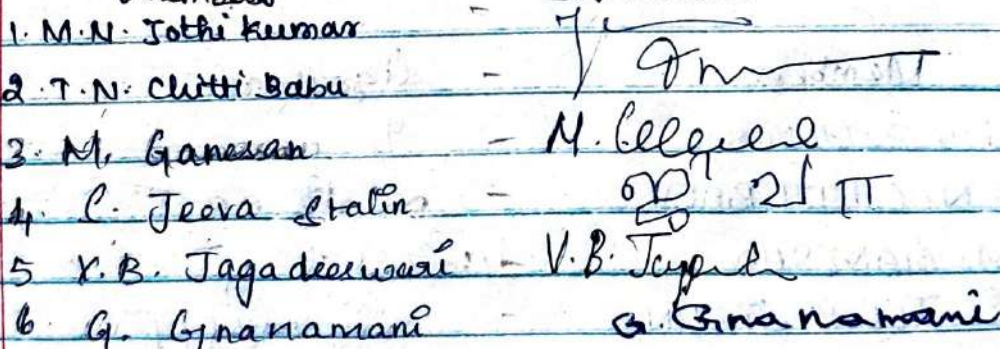 1. M.N. Jothi Kumar -
2. T.N. Chitti Babu -
3. M. Ganesan - M.
4. C. Jeeva Stalin - ஜீவா
5 V.B. Jagadeeswari - V.B.
6 G. Gnanamani G. Gnanamani